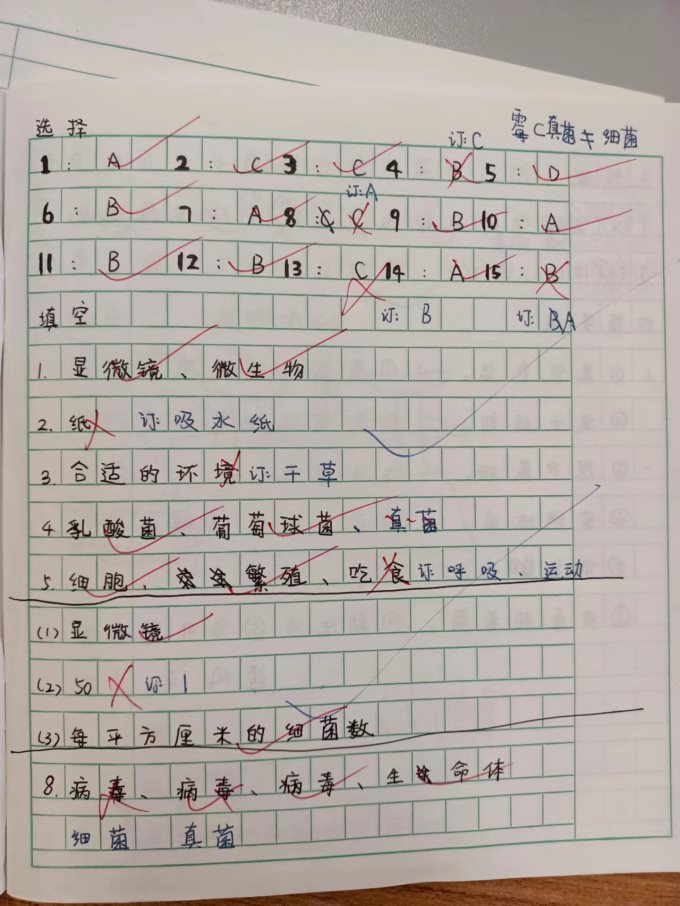 选择
订:C 霉C真菌≠细菌
1: A 2: C 3: C 4: B 5: D
订:A
6: B 7: A 8: C 9: B 10: A
11: B 12: B 13: C 14: A 15: B
填空 订: B 订: BA
1. 显微镜、微生物
2. 纸 订吸水纸
3. 合适的环境 订干草
4. 乳酸菌、葡萄球菌、真菌
5. 细胞、繁殖、吃食 订呼吸、运动
(1) 显微镜
(2) 50 订 1
(3) 每平方厘米的细菌数
8. 病毒、病毒、病毒、生命体
细菌 真菌